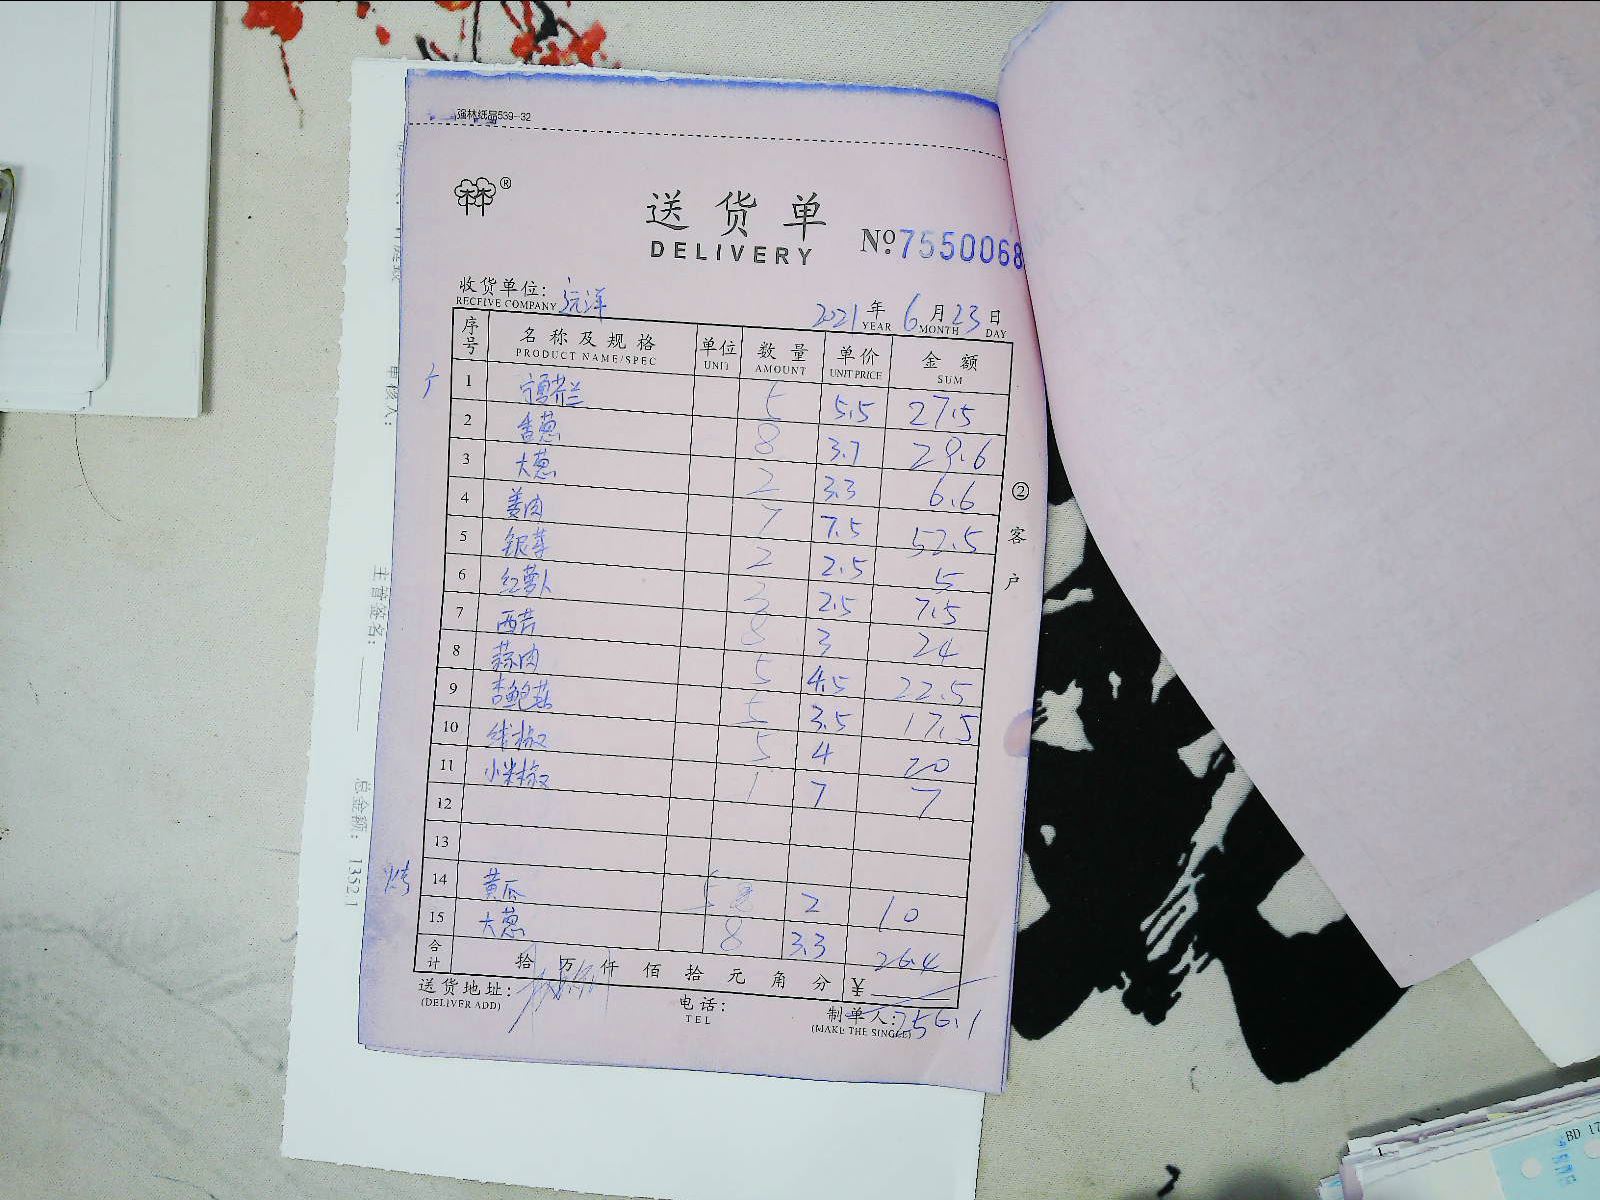 强林纸品539-32
®
送货单
DELIVERY
№7550068
收货单位: 远洋
RECFIVE COMPANY
2021年6月23日
YEAR MONTH DAY
序号 名称及规格 单位 数量 单价 金额
PRODUCT NAME/SPEC UNIT AMOUNT UNIT PRICE SUM
1 芥兰 5 5.5 27.5
2 香葱 8 3.7 29.6
3 大葱 2 3.3 6.6
4 姜肉 7 7.5 52.5
5 银芽 2 2.5 5
6 红萝卜 3 2.5 7.5
7 西芹 8 3 24
8 蒜肉 5 4.5 22.5
9 杏鲍菇 5 3.5 17.5
10 线椒 5 4 20
11 小米椒 1 7 7
12
13
烤 14 黄瓜 5 2 10
15 大葱 8 3.3 26.4
合计 拾 万 仟 佰 拾 元 角 分 ¥
256.1
送货地址: 电话: 制单人:
(DELIVER ADD) TEL (MAKE THE SINGLE)
②客户
审核人:
主管签名:
总金额: 1352.1
BD 17